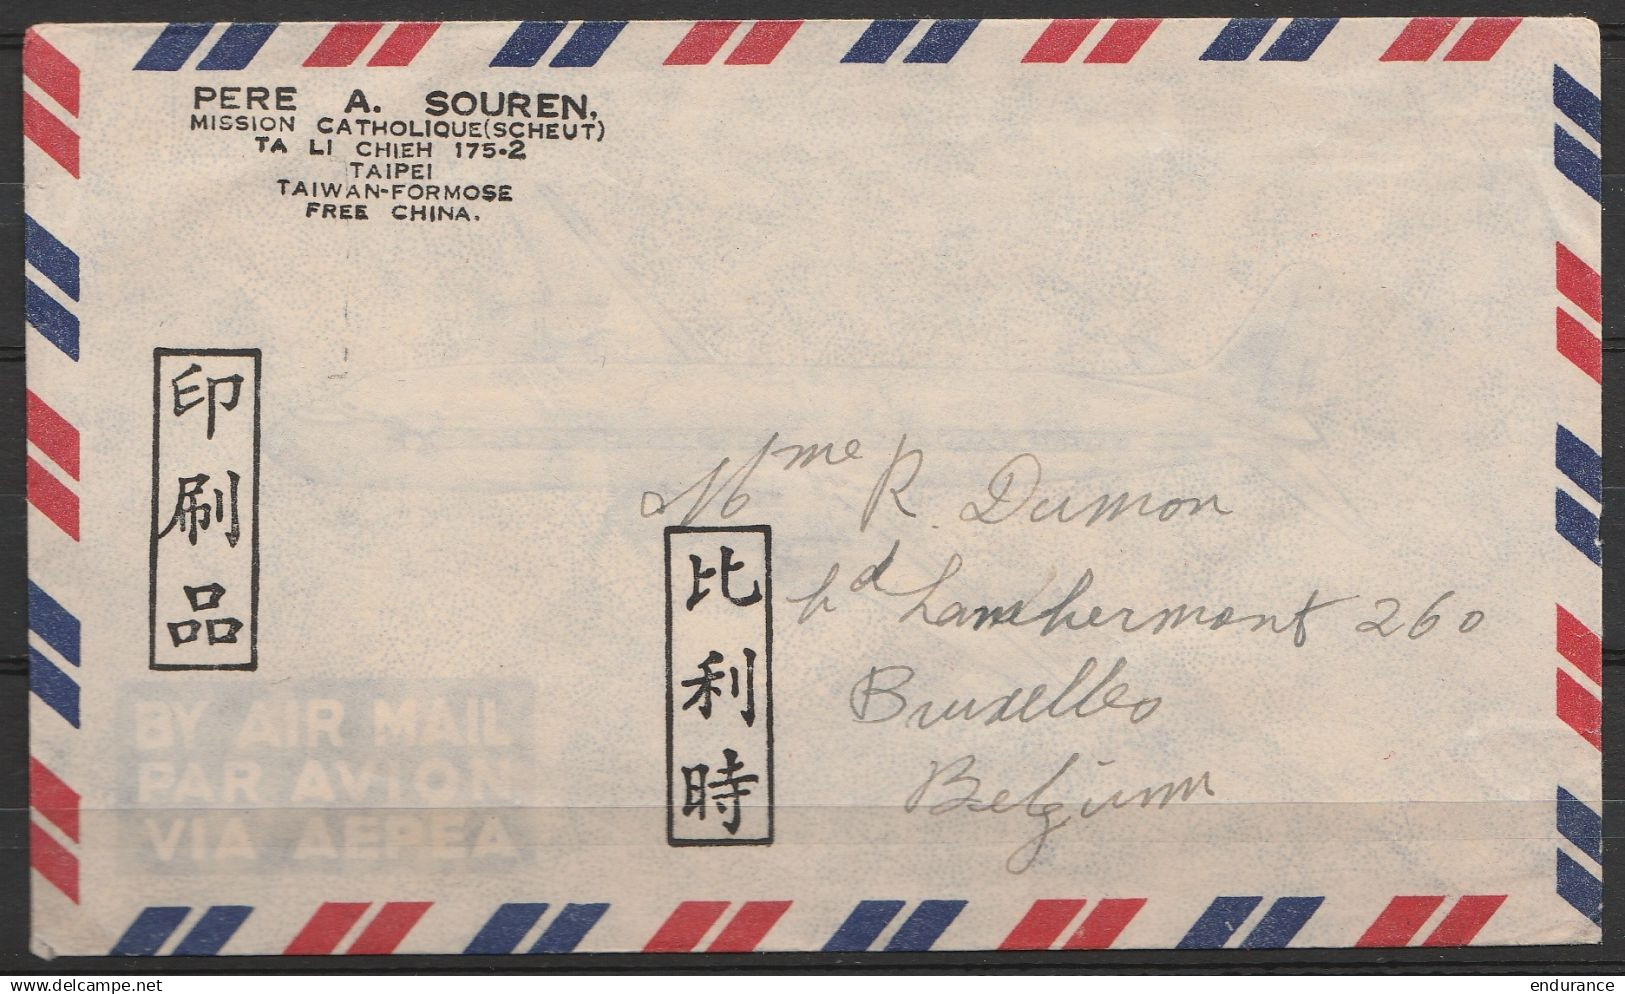 PERE A. SOUREN,
MISSION CATHOLIQUE(SCHEUT)
TA LI CHIEH 175-2
TAIPEI
TAIWAN-FORMOSE
FREE CHINA.
印刷品
Mme R. Dumon
比利時
bd Lambermont 260
Bruxelles
Belgium
BY AIR MAIL
PAR AVION
VIA AEREA
delcampe.net
endurance